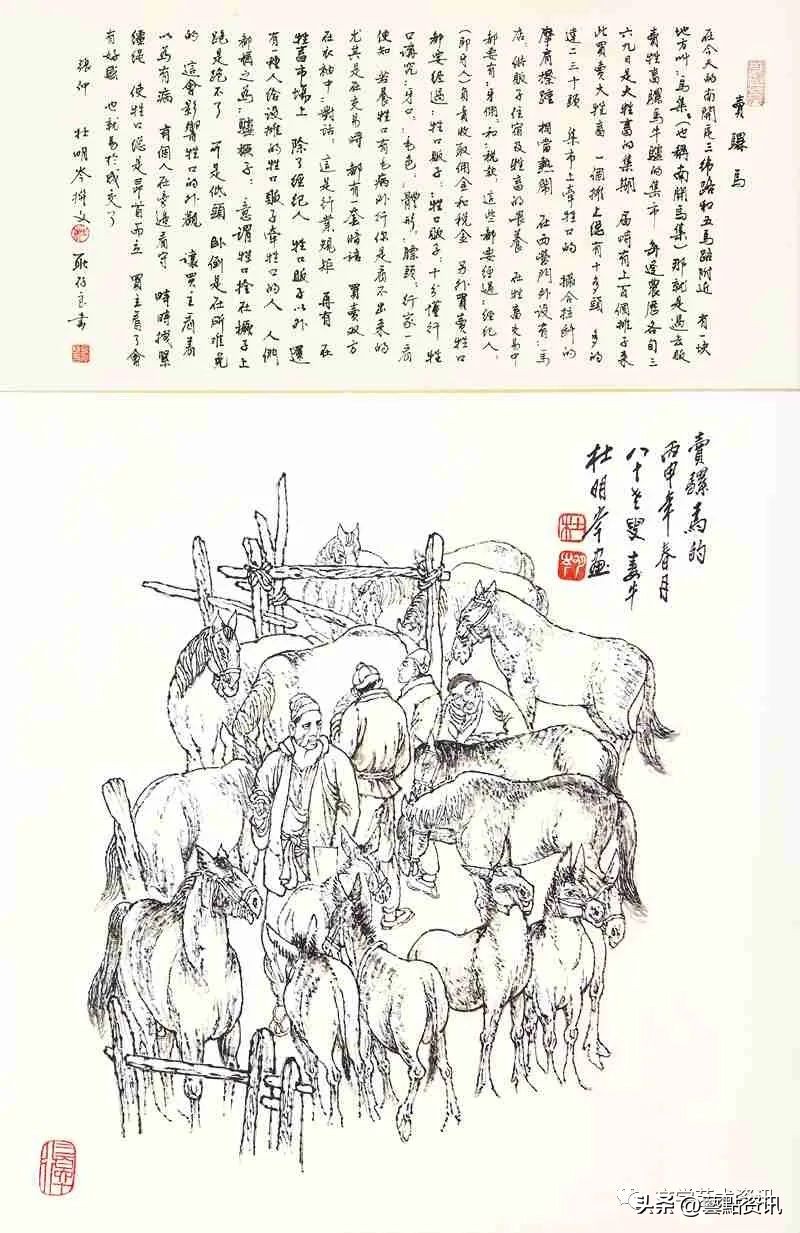 賣騾馬
在今天的南開區三緯路和五馬路附近 有一塊
地方叫:馬集。(也稱南開馬集)那就是過去販
賣牲畜騾馬牛驢的集市 每逢農歷各旬三
六九日是大牲畜的集期 屆時有上百個攤子來
此買賣大牲畜 一個攤上總有十多頭 多的
達二三十頭 集市上牽牲口的 撮合拉縴的
摩肩擦踵 相當熱鬧 在西營門外設有:馬
店:供販子住宿及牲畜的喂養 在牲畜交易中
都要有:牙佣:和:税款,這些都要經過:經纪人,
(即牙人)負責收取佣金和税金 另外買賣牲口
都要經過:牲口販子::牲口販子,十分懂行 牲
口講究:牙口,毛色,體形,膘頭,行家一看
便知 若養牲口有毛病外行你是看不出來的
尤其是在交易時 都有一套暗語 買賣双方
在衣袖中:對話,這是行業規矩 再有 在
牲畜市場上 除了經纪人 牲口販子以外 還
有一種人俗设攤的牲口販子牵牲口的人 人們
都稱之為:驢橛子:意謂牲口拴在橛子上
跑是跑不了 可是低頭 卧倒是在所难免
的 這會影響牲口的外觀 讓買主看着
以為有病 有個人在旁邊看守 時時拽緊
繮绳 使牲口總是昂首而立 買主看了會
有好感 也就易於成交了
張仲 杜明岑 撰文
書
賣騾馬的
丙申年春月
八十老叟 春牛
杜明岑畫
杜
明岑
头条@藝點资讯